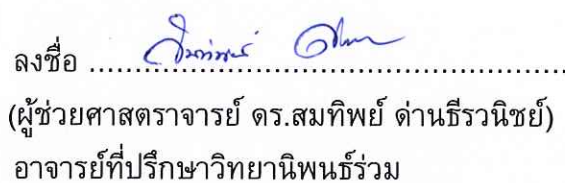 ลงชื่อ ................................................
(ผู้ช่วยศาสตราจารย์ ดร.สมทิพย์ ด่านธีรวนิชย์)
อาจารย์ที่ปรึกษาวิทยานิพนธ์ร่วม